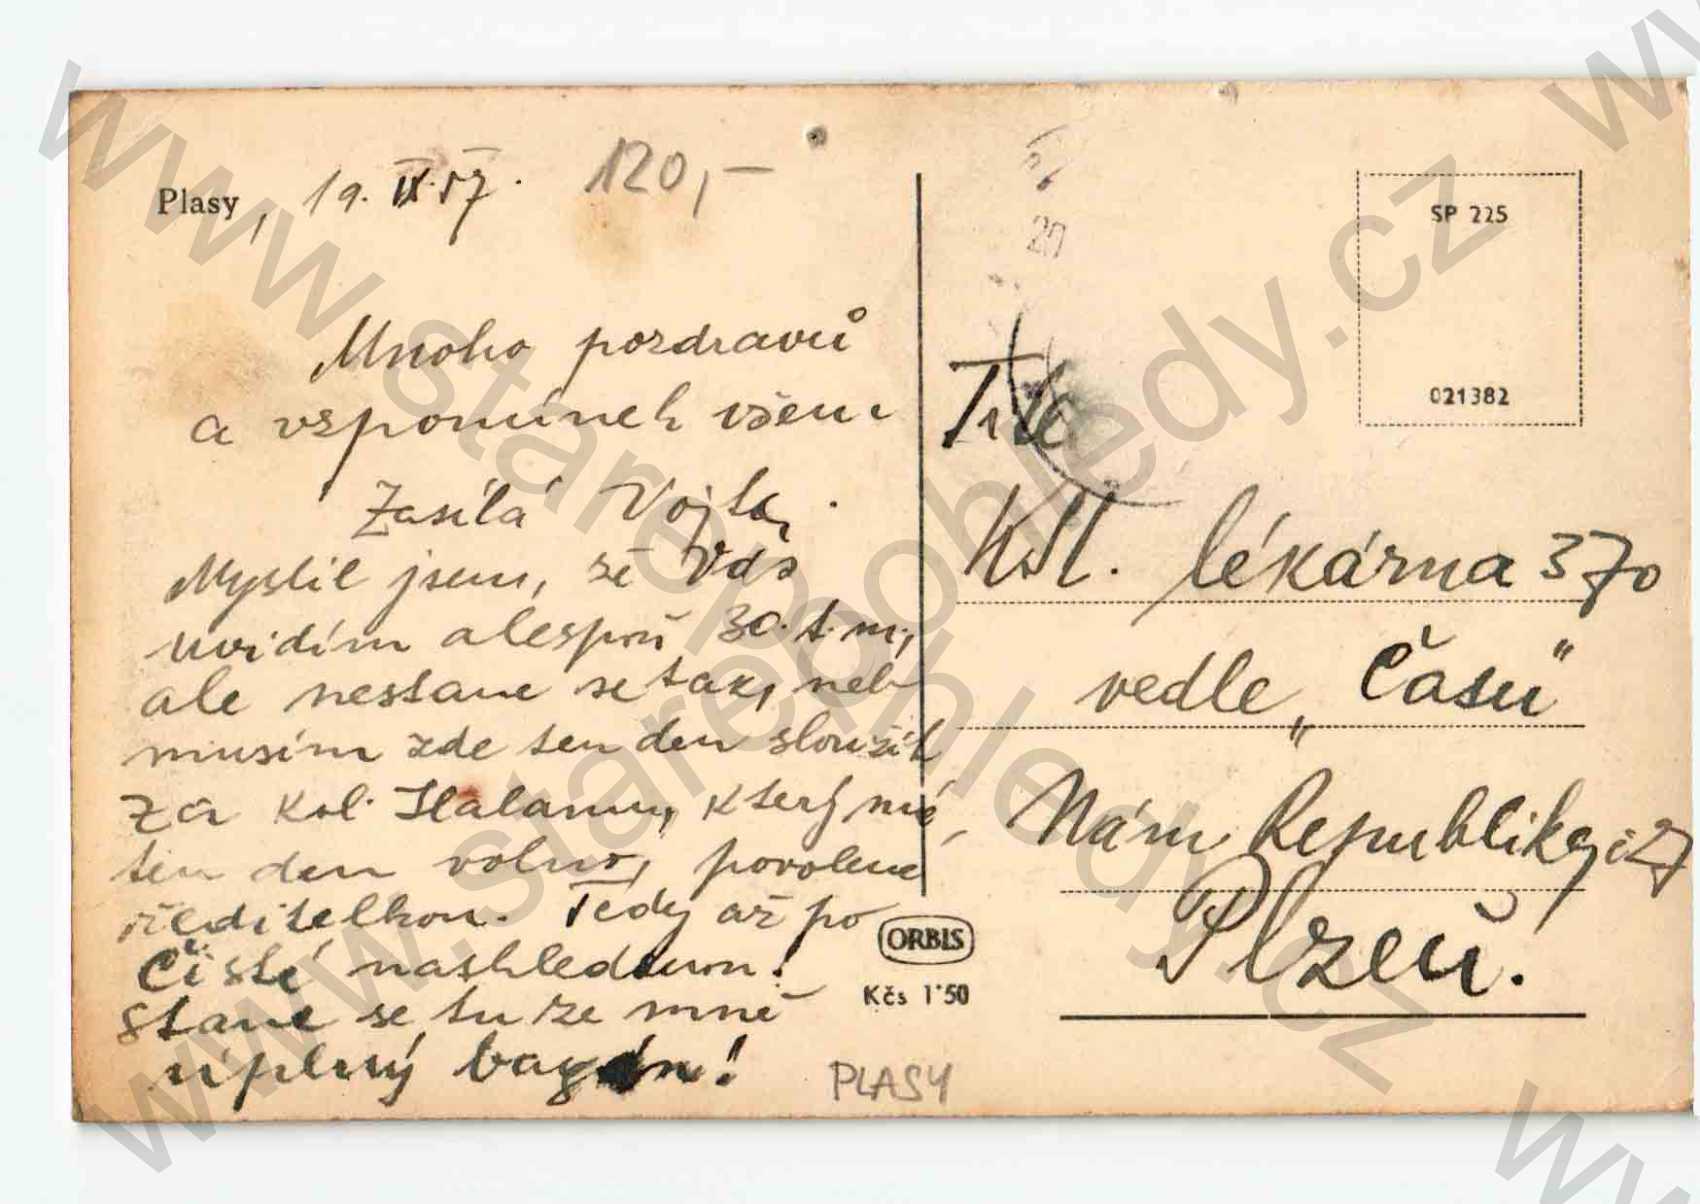 Plasy, 19. IX. 57.
120,-
Mnoho pozdravů
a vzpomínek všem
Zasílá Vojta.
Myslil jsem, že Vás
uvidím alespoň 30. t. m.,
ale nestane se tak, neb
musím zde ten den sloužit
za kol. který má
ten den volno, povolené
ředitelkou. Tedy až po
čisté nashledanou!
Stane se tu ze mně
úplný
ORBIS
Kčs 1·50
PLASY
20
SP 225
021382
lékárna 370
vedle „Času“
Nám Republiky č 27
Plzeň.
www.starepohledy.cz
www.starepohledy.cz